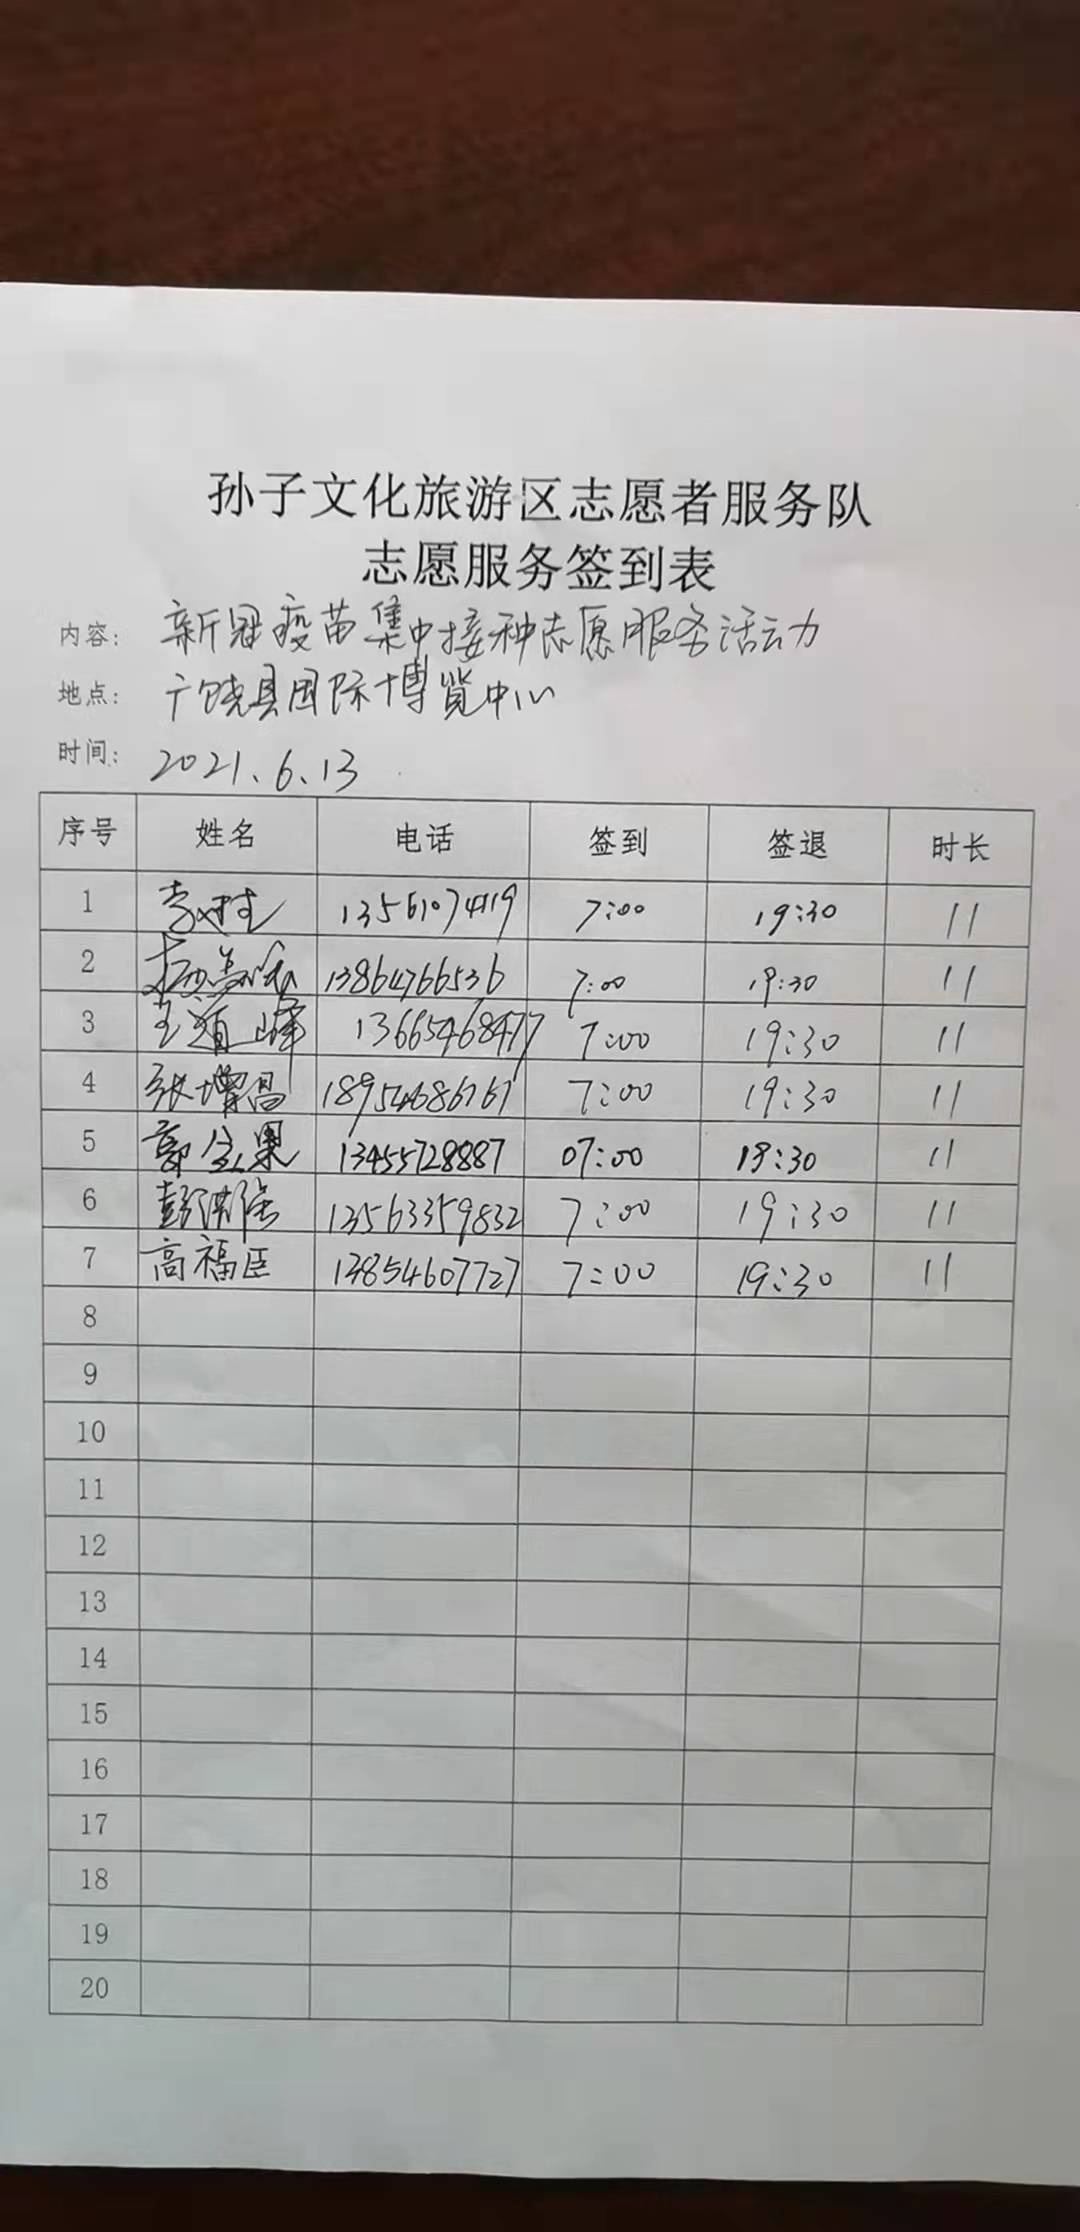 孙子文化旅游区志愿者服务队
志愿服务签到表
内容: 新冠疫苗集中接种志愿服务活动
地点: 广饶县国际博览中心
时间: 2021.6.13
序号 姓名 电话 签到 签退 时长
1 13561074119 7:00 19:30 11
2 13864766536 7:00 19:30 11
3 王道峰 13665468477 7:00 19:30 11
4 张增昌 18954686767 7:00 19:30 11
5 13455728887 07:00 19:30 11
6 13563359832 7:00 19:30 11
7 高福臣 13854607727 7:00 19:30 11
8
9
10
11
12
13
14
15
16
17
18
19
20